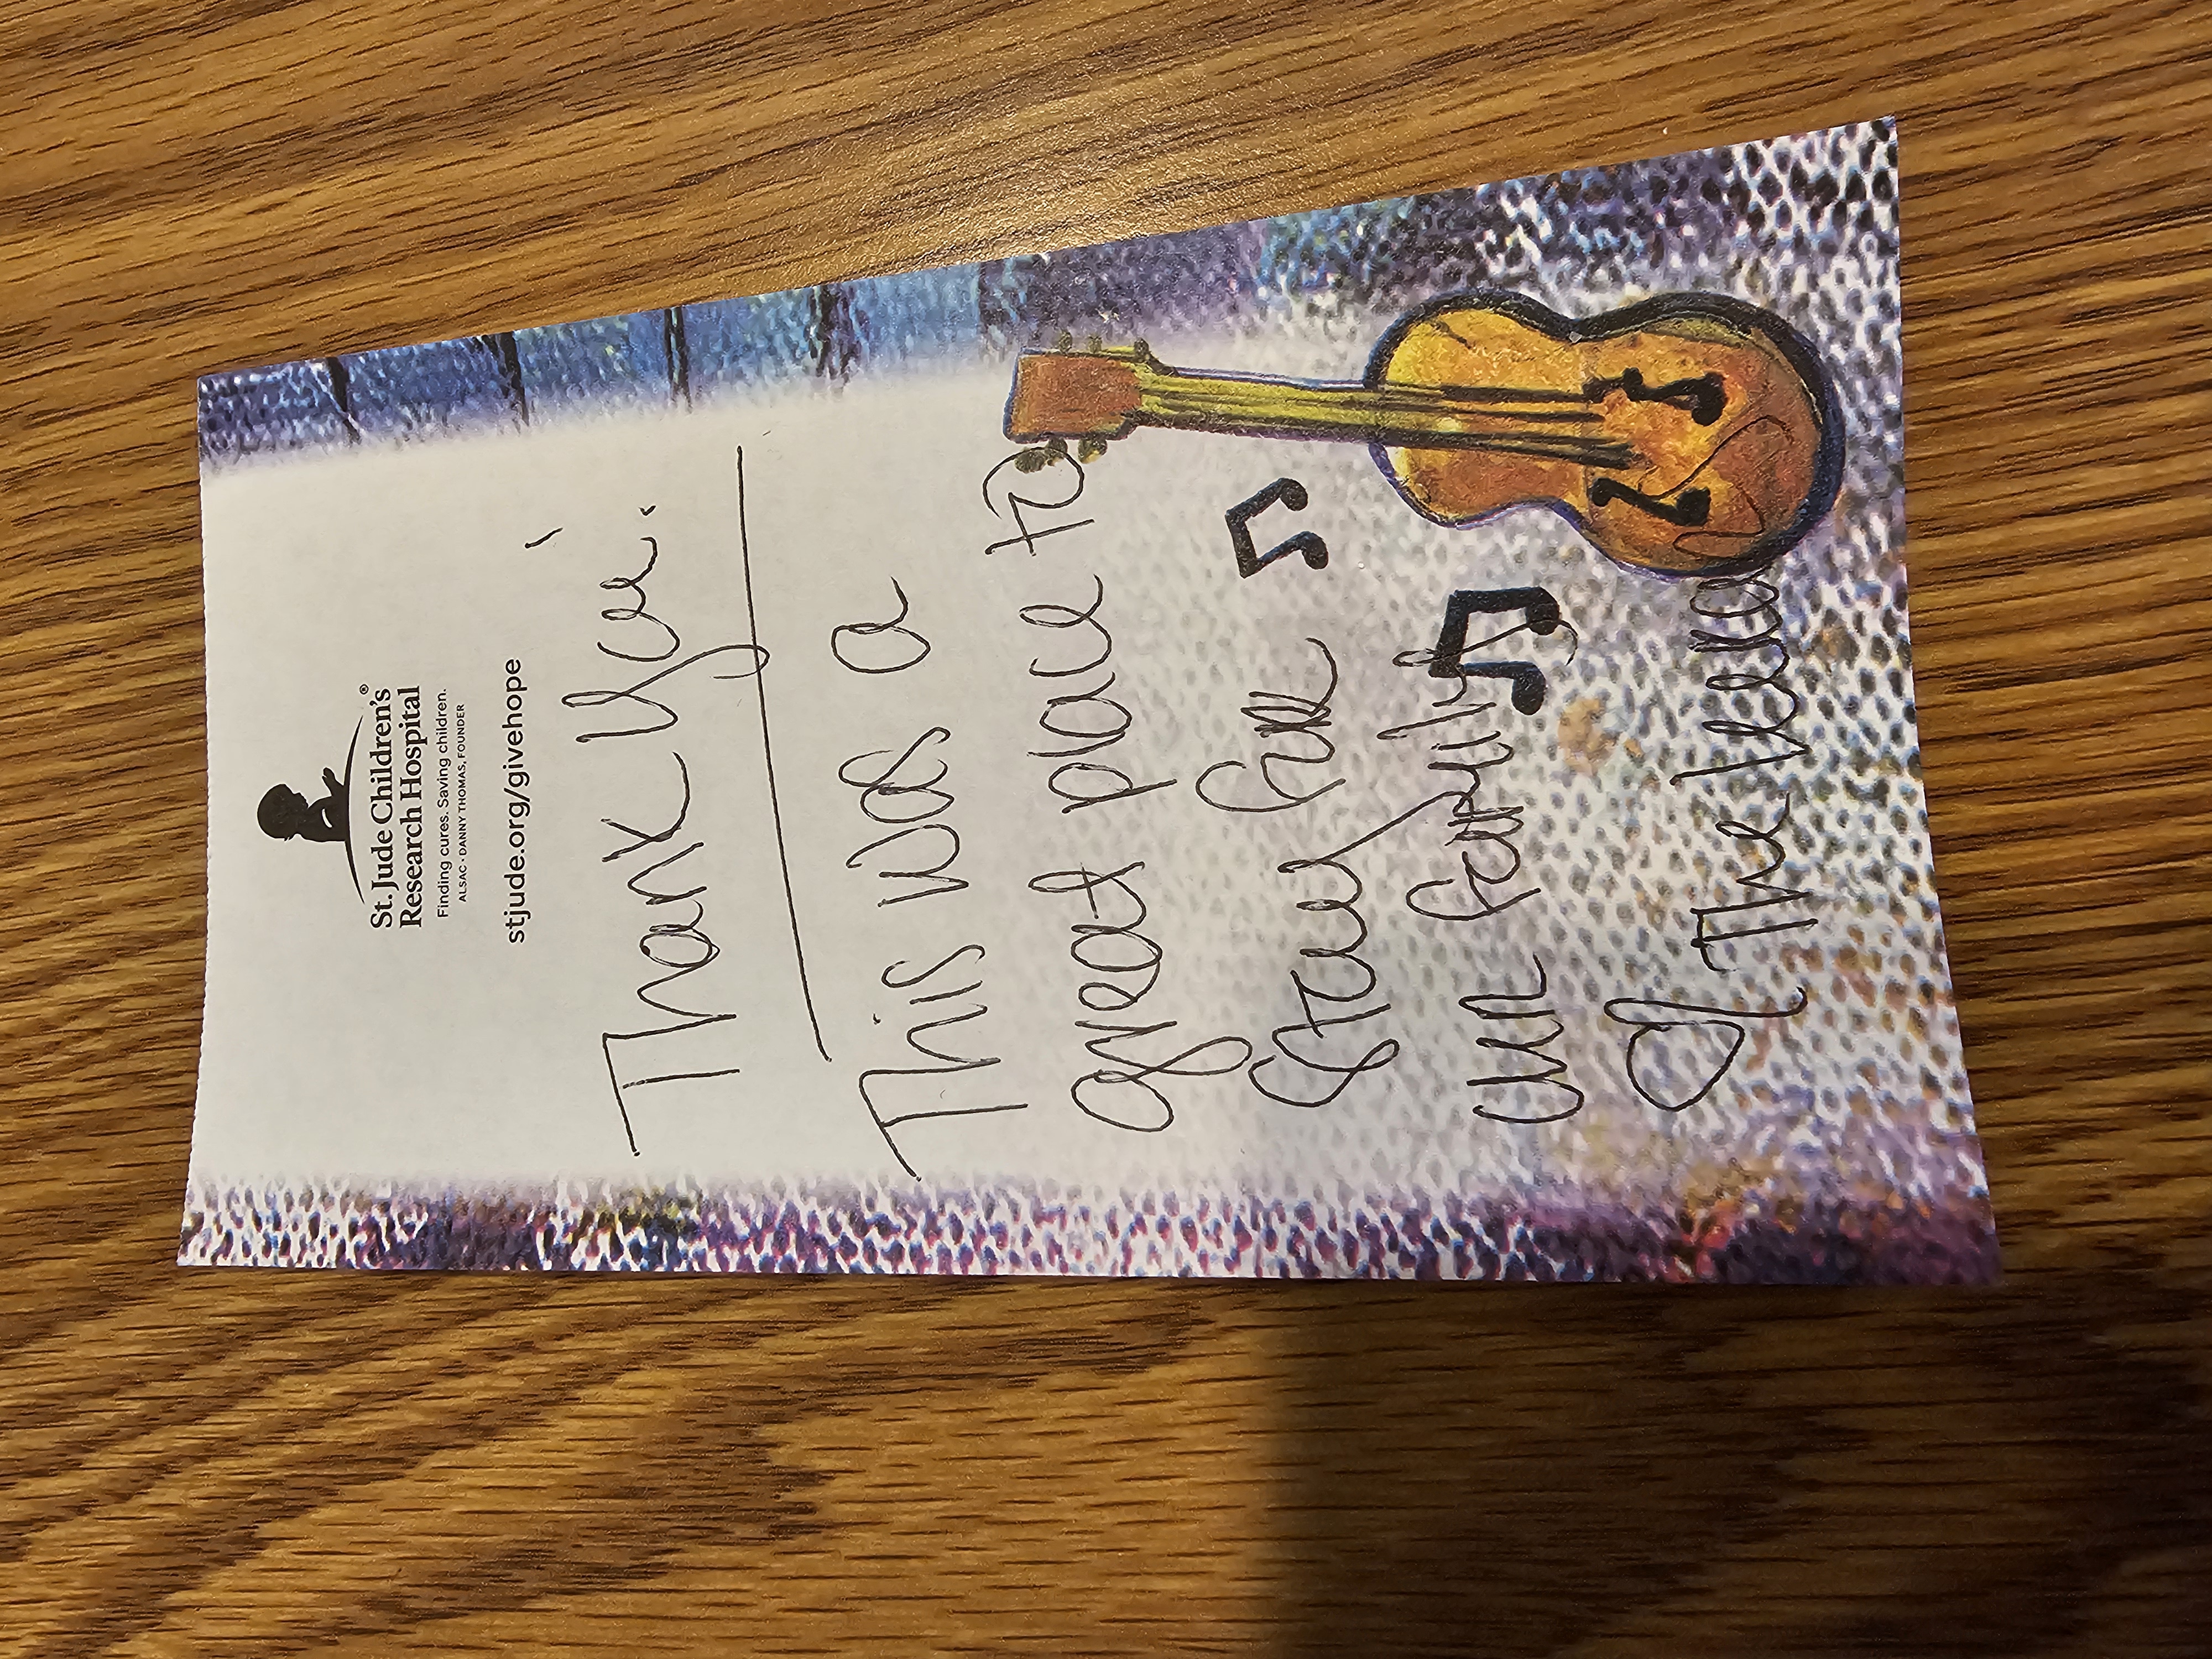 St. Jude Children's®
Research Hospital
Finding cures. Saving children.
ALSAC • DANNY THOMAS, FOUNDER
stjude.org/givehope
Thank you!
This was a
great place to
stay for
our family
at the